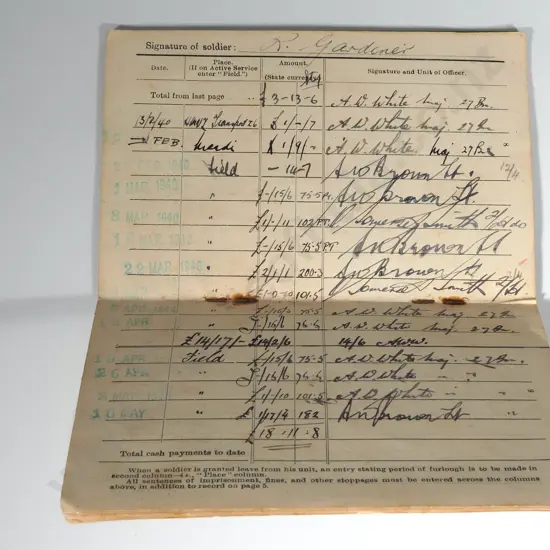 Signature of soldier: R. Gardiner
Date. Place. (If on Active Service enter "Field.") Amount. (State currency) Signature and Unit of Officer.
Total from last page £ 3-13-6 A.D. White Maj 27 Bn.
13/2/40 HMNZ Transport Z6 £ 1/-/7 A.D. White Maj 27 Bn.
FEB. Maadi £ 1/9/- A.D. White Maj 27 Bn "
FEB 1940 Field -14-7 Brown Lt.
2 MAR 1940 " £-/15/6 75.5 PT Brown Lt.
8 MAR 1940 " £1/-/11 102 PT Somerset Smith 2/Lt
1 MAR 1940 " £-/15/6 75.5 PT Brown Lt
22 MAR 1940 " £2/1/1 200.3 Brown Lt
" £1-0-10 101.5 Somerset Smith 2/Lt
APR 1940 " £-/15/6 75.5 A.D. White Maj 27 Bn
APR " £-/15/6 75.5 A.D. White Maj 27 Bn.
£14/17/- £14/2/6 14/6 A.D.W.
APR Field £-/15/6 75.5 A.D. White Maj 27 Bn.
26 APR " £-/15/6 75.5 A.D. White " "
" £1/-/10 101.5 A.D. White " "
16 MAY " £1/17/4 182 Brown Lt "
£18.11.8
Total cash payments to date
When a soldier is granted leave from his unit, an entry stating period of furlough is to be made in
second column—i.e., "Place" column.
All sentences of imprisonment, fines, and other stoppages must be entered across the columns
above, in addition to record on page 5.